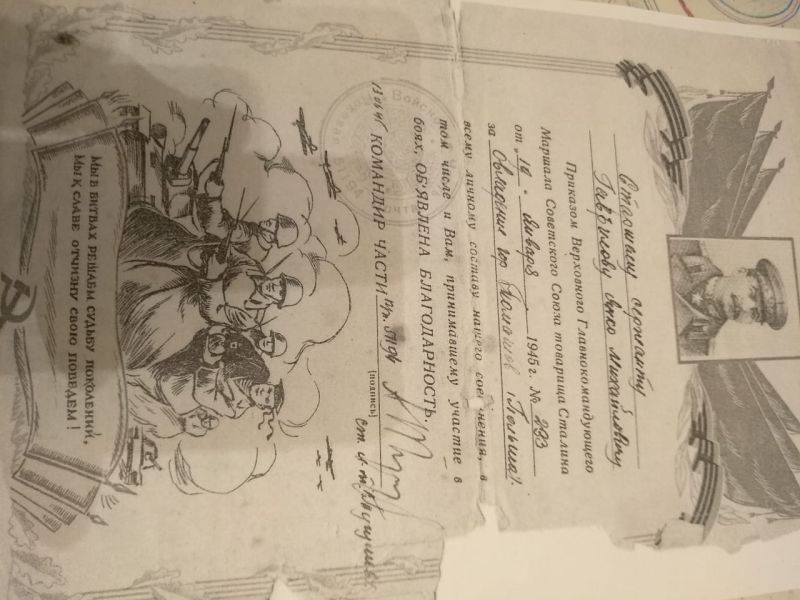 Старшему сержанту
Гаврилову Янсо Михайловичу
Приказом Верховного Главнокомандующего
Маршала Советского Союза товарища Сталина
от января 1945 г. № 233
за Овладение гор. (Польша).
всему личному составу нашего соединения, в
том числе и Вам, принимавшему участие в
боях, ОБ'ЯВЛЕНА БЛАГОДАРНОСТЬ.
КОМАНДИР ЧАСТИ
(подпись)
МЫ В БИТВАХ РЕШАЕМ СУДЬБУ ПОКОЛЕНИЙ,
МЫ К СЛАВЕ ОТЧИЗНУ СВОЮ ПОВЕДЕМ!